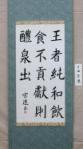 王者純和飲
食不貢獻則
醴泉出